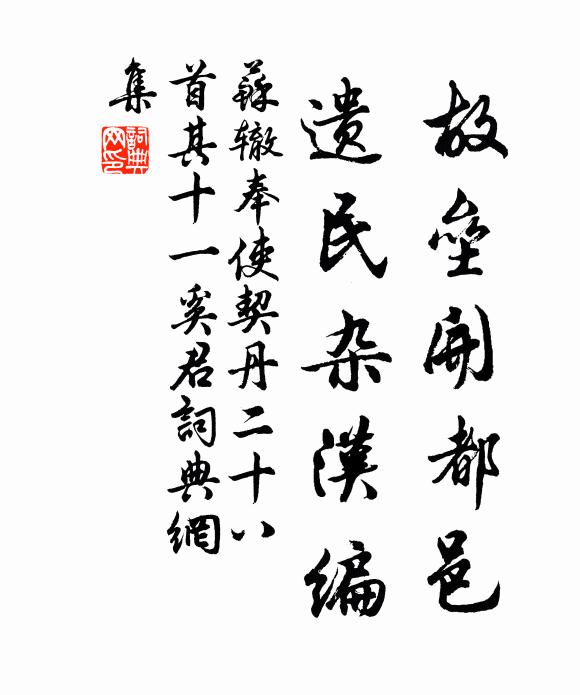 故壘開都邑
遗民杂漢编
蘇辙奉使契丹二十八
首其十一奚君詞典網
集
詞典
网印